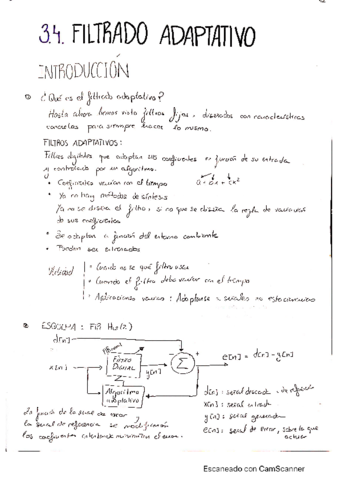 3.4. FILTRADO ADAPTATIVO
INTRODUCCIÓN
¿Qué es el filtrado adaptativo?
Hasta ahora hemos visto filtros fijos, diseñados con características
concretas para siempre hacer lo mismo.
FILTROS ADAPTATIVOS:
Filtros digitales que adaptan sus coeficientes en función de su entrada
y controlado por un algoritmo.
• Coeficientes varían con el tiempo
• Ya no hay métodos de síntesis
Ya no se diseña el filtro, si no que se diseña la regla de variación
de sus coeficientes
• Se adaptan a función del entorno cambiante
• Pueden ser entrenados
Utilidad
• Cuando no se qué filtro usar
• Cuando el filtro debe variar con el tiempo
• Aplicaciones varias: Adaptarse a señales no estacionarias
ESQUEMA: FIR
d[n]
x[n]
FILTRO DIGITAL
y[n]
Σ
e[n] = d[n] - y[n]
Algoritmo adaptativo
d[n]: señal deseada
x[n]: señal entrada
y[n]: señal generada
e[n]: señal de error, sobre la que
actuar
En función de la señal de error y
la señal de referencia se modificarán
los coeficientes intentando minimizar el error.
Escaneado con CamScanner